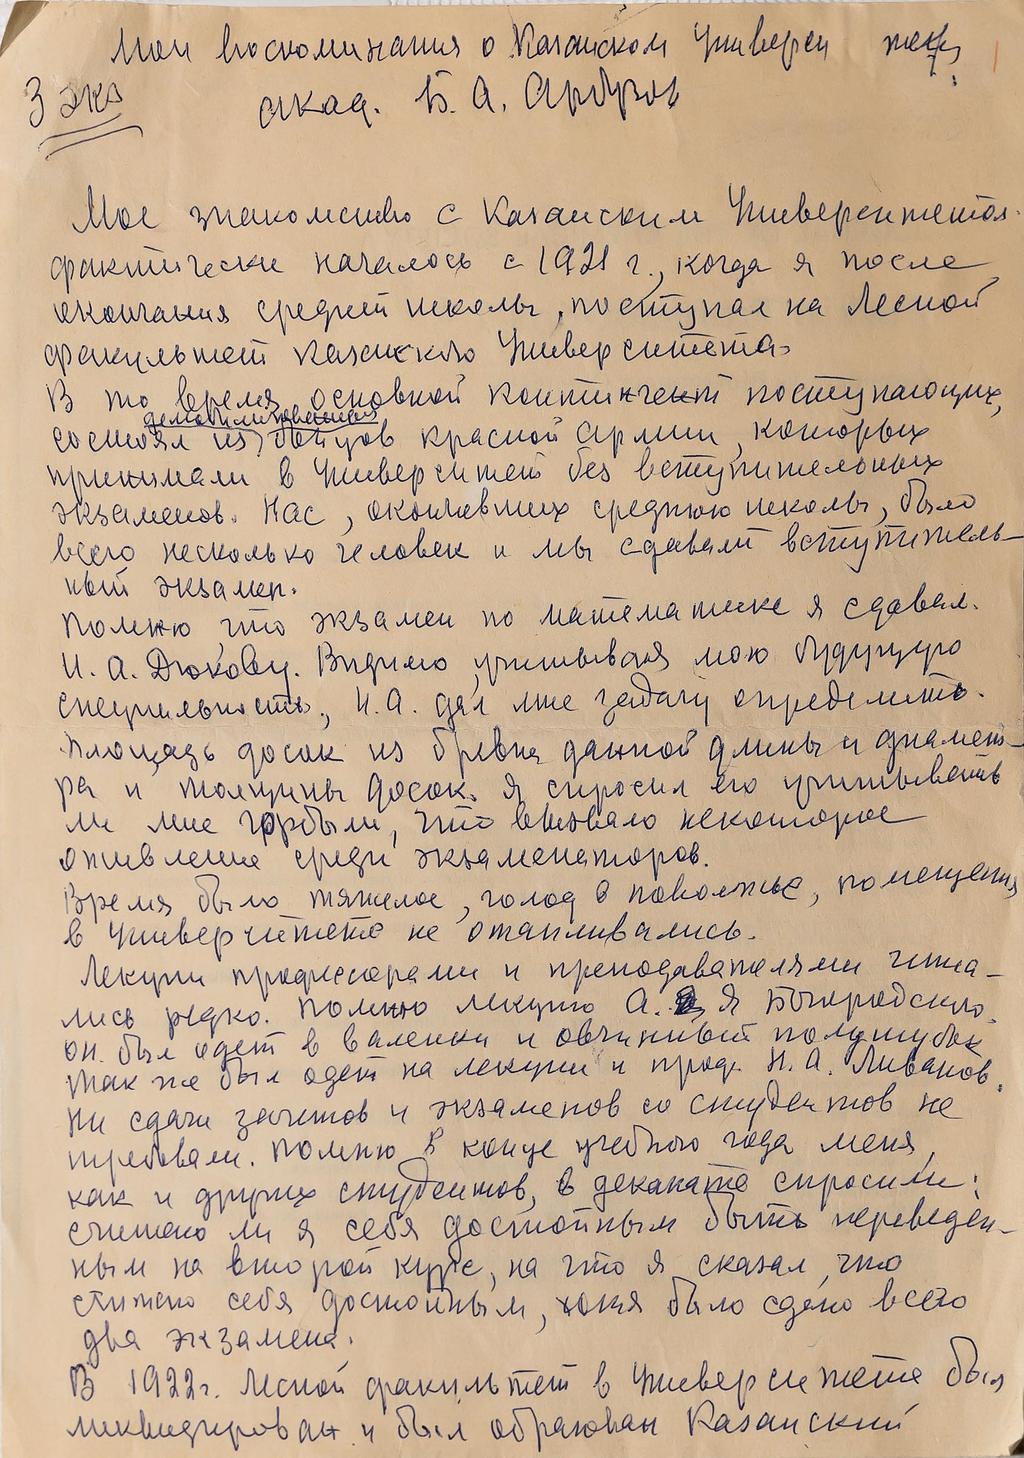 Мои воспоминания о Казанском Универси тете
3 экз
акад. Б. А. Арбузов
Мое знакомство с Казанским Университетом
фактически началось с 1921 г., когда я после
окончания средней школы, поступал на Лесной
факультет Казанского Университета.
В то время основной контингент поступающих,
демобилизованных
состоял из бойцов красной Армии, которых
принимали в Университет без вступительных
экзаменов. Нас, окончивших среднюю школы, было
всего несколько человек и мы сдавали вступитель-
ный экзамен.
Помню что экзамен по математике я сдавал
И. А. Дюкову. Видимо, учитывая мою будущую
специльность, И. А. дал мне задачу определить
площадь досок из бревна данной длины и диамет-
ра и толщины досок. Я спросил его учитывать
ли мне горбыли, что вызвало некоторое
оживление среди экзаменаторов.
Время было тяжелое, голод в поволжье, помещения
в Университете не отапливались.
Лекции профессорами и преподавателями чита-
лись редко. Помню лекцию А. Я Богородского,
он был одет в валенки и овчинный полушубок
Так же был одет на лекции и проф. Н. А. Ливанов.
Ни сдачи зачетов и экзаменов со студентов не
требовали. Помню в конце учебного года меня,
как и других студентов, в деканате спросили:
считаю ли я себя достойным быть переведен-
ным на второй курс, на что я сказал, что
считаю себя достойным, хотя было сдано всего
два экзамена.
В 1922 г. Лесной факультет в Университете был
ликвидирован и был образован Казанский